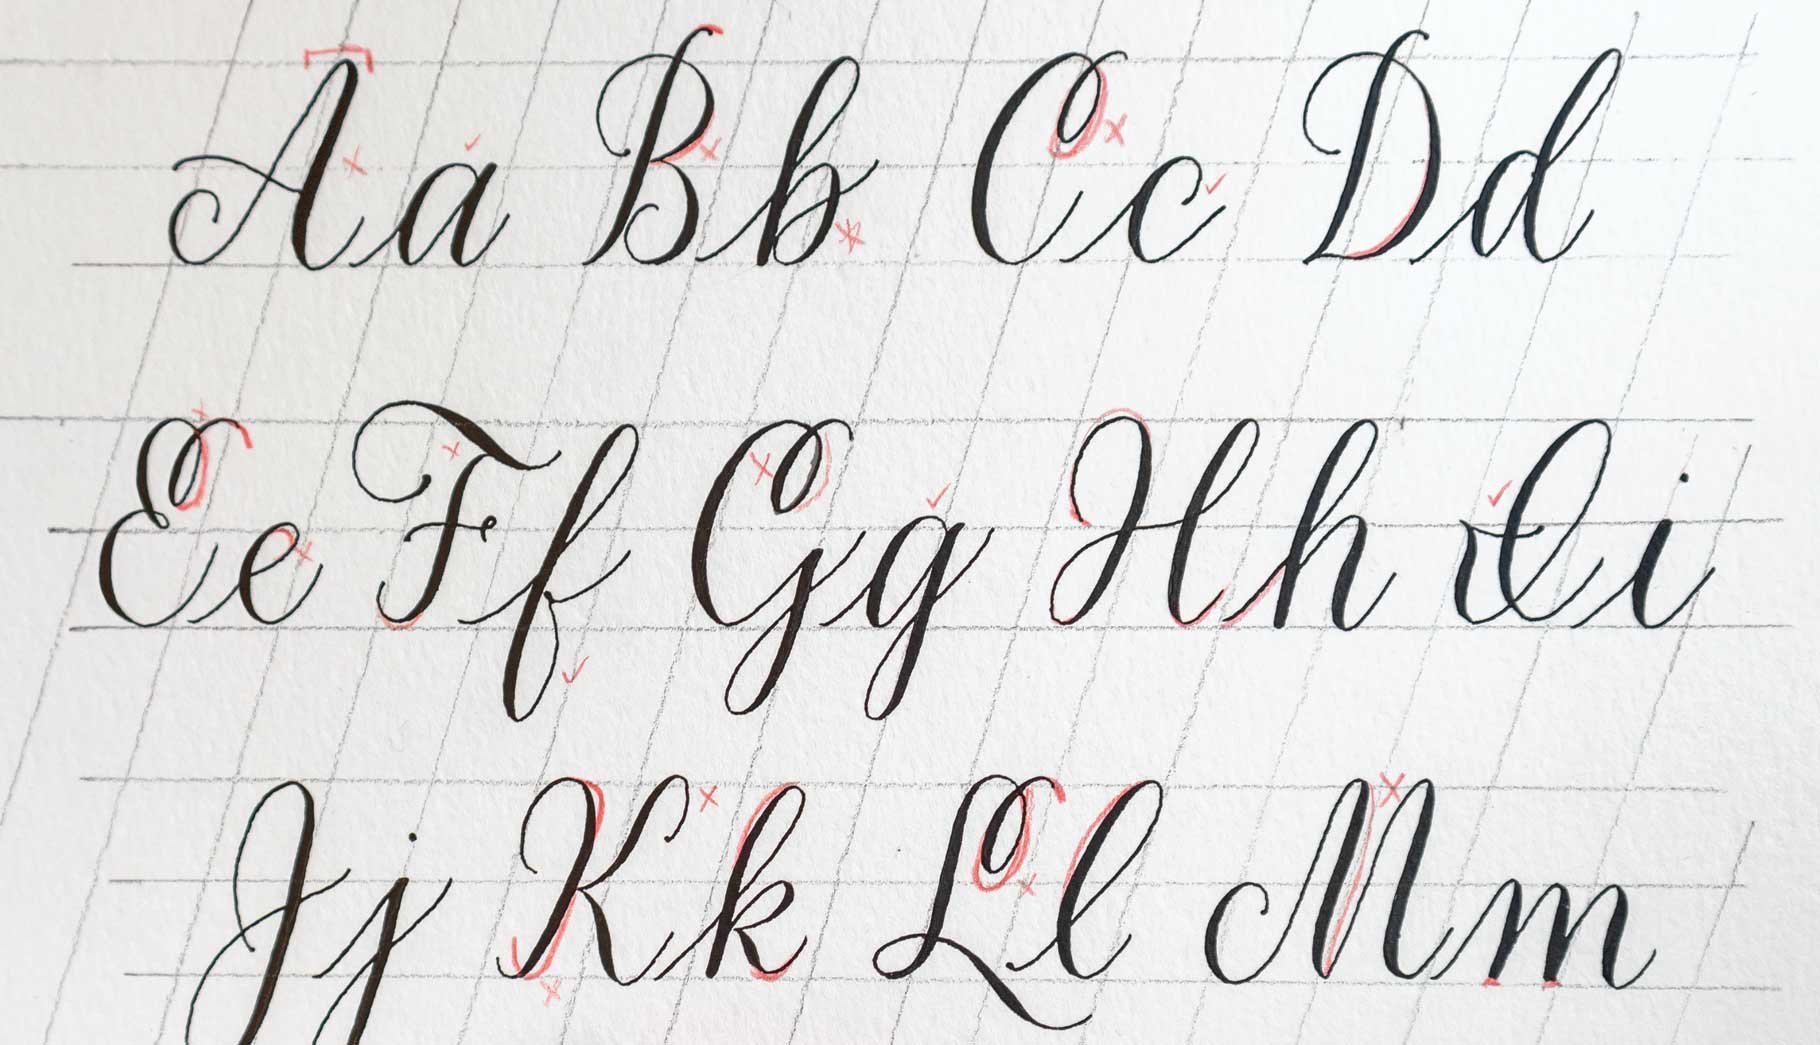 Aa Bb Cc Dd
Ee Ff Gg Hh Ii
Jj Kk Ll Mm